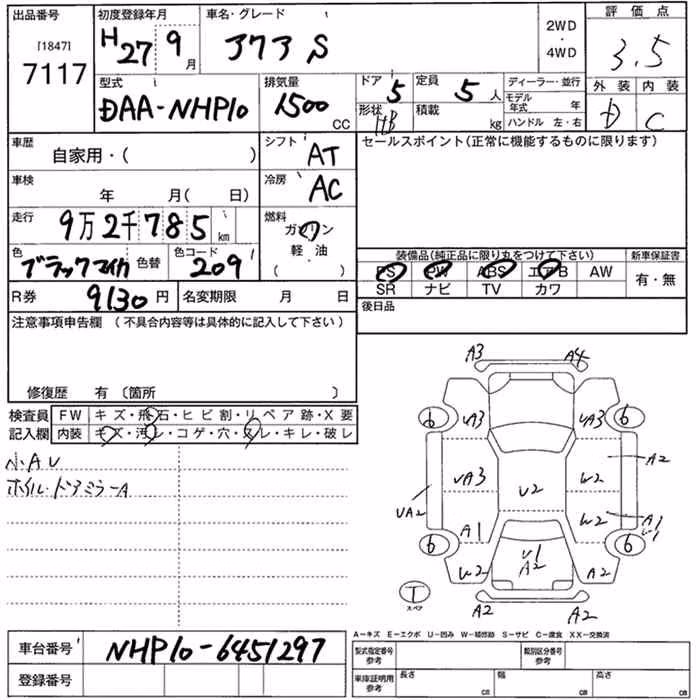 出品番号 初度登録年月 車名・グレード 評価点
[1847] 2WD
7117 H27 9月 アクア S ・ 3.5
4WD
型式 排気量 ドア 5 定員 5人 ディーラー・並行 外装 内装
DAA-NHP10 1500 CC 形状 HB 積載 kg モデル年式 年 D C
ハンドル 左・右
車歴 自家用・( ) シフト AT セールスポイント(正常に機能するものに限ります)
車検 年 月( 日) 冷房 AC
走行 9万2千785km 燃料 ガソリン
軽油
( )
色 ブラックマイカ 色替 色コード 209 装備品(純正品に限り丸をつけて下さい) 新車保証書
PS PW ABS エアB AW 有・無
SR ナビ TV カワ
R券 9130円 名変期限 月 日 後日品
注意事項申告欄 (不具合内容等は具体的に記入して下さい)
修復歴 有 〔箇所 〕
検査員 FW キズ・飛石・ヒビ割・リペア跡・X要
記入欄 内装 キズ・汚レ・コゲ・穴・スレ・キレ・破レ
小AU
ホイル・ドアミラーA
A3 A4
6 VA3 VA3 6
A2
VA3 U2 W2
UA2 W2 A1
A1 W1
6 U1 6
W2 A2 A2
T
スペア A2 A2
A-キズ E-エクボ U-凹み W-補修跡 S-サビ C-腐食 XX-交換済
車台番号 NHP10-6451297 型式指定番号 参考 類別区分番号 参考
登録番号 車庫証明用 参考 長さ cm 幅 cm 高さ cm